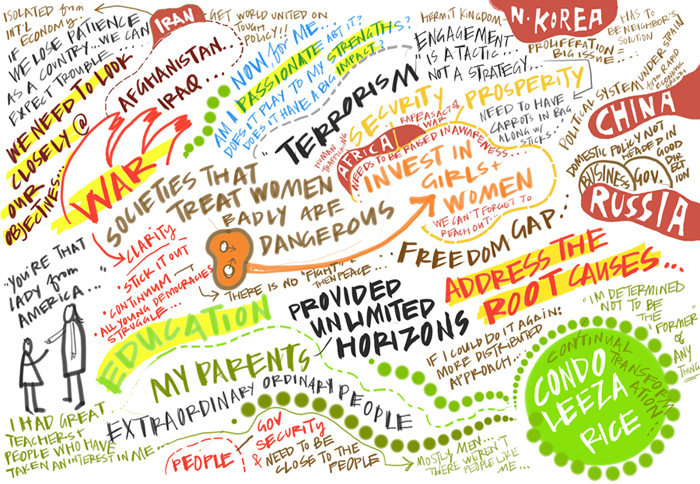 ISOLATED from
INT'L
ECONOMY
IRAN
GET WORLD UNITED ON
TOUGH
POLICY!!
IF
WE LOSE PATIENCE
AS A COUNTRY.. WE CAN
EXPECT TROUBLE...
AFGHANISTAN..
IRAQ...
WE NEED TO LOOK
CLOSELY @
OUR
OBJECTIVES...
WAR
NOW for ME.
AM I PASSIONATE ABT IT?
DOES IT PLAY TO MY STRENGTHS?
DOES IT HAVE A BIG IMPACT?
HERMIT KINGDOM
N. KOREA
"ENGAGEMENT
IS A TACTIC...
NOT A STRATEGY...
PROLIFERATION
BIG ISSUE...
HAS TO
BE NEIGHBOR'S
SOLUTION
"TERRORISM"
SECURITY
PROSPERITY
NEED TO HAVE
CARROTS IN BAG
ALONG w/
STICKS...
POLITICAL SYSTEM UNDER STRAIN
from RAPID
ECONOMIC
CHINA
HUMAN
TRAFFICKING
RAPE AS ACT of
WAR
AFRICA!
NEEDS TO BE RAISED IN AWARENESS...
INVEST IN
GIRLS +
WOMEN
WE CAN'T FORGET TO
REACH OUT...
DOMESTIC POLICY NOT
HEADED IN GOOD
DIRECTION
BUSINESS
GOV.
RUSSIA
SOCIETIES THAT
TREAT WOMEN
BADLY ARE
DANGEROUS
FREEDOM GAP..
CLARITY
STICK IT OUT
"CONTINUUM"
ALL YOUNG DEMOCRACIES
STRUGGLE...
THERE IS NO "FIGHT"
THEN PEACE...
ADDRESS THE
ROOT CAUSES...
"YOU'RE THAT
LADY from
AMERICA..."
EDUCATION
PROVIDED
UNLIMITED
HORIZONS
MY PARENTS
EXTRAORDINARY ORDINARY PEOPLE
IF I COULD DO IT AGAIN:
MORE DISTRIBUTED
APPROACH...
"I'M DETERMINED
NOT TO BE
THE FORMER
of
ANY
THING
CONTINUAL
TRANSFORMATION
CONDO
LEEZA
RICE
I HAD GREAT
TEACHERS +
PEOPLE WHO HAVE
TAKEN AN INTEREST IN ME
PEOPLE
GOV
SECURITY
& NEED TO BE
CLOSE TO THE
PEOPLE
MOSTLY MEN...
THERE WEREN'T
PEOPLE LIKE
ME...